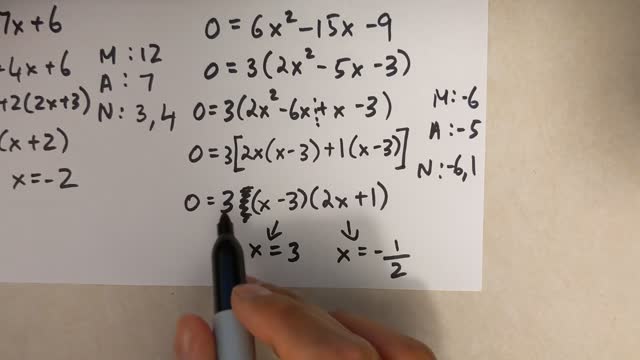 7x+6
-4x+6
+2(2x+3)
(x+2)
x=-2
M:12
A:7
N:3,4
0=6x²-15x-9
0=3(2x²-5x-3)
0=3(2x²-6x+x-3)
0=3[2x(x-3)+1(x-3)]
0=3(x-3)(2x+1)
x=3 x=-1/2
M:-6
A:-5
N:-6,1